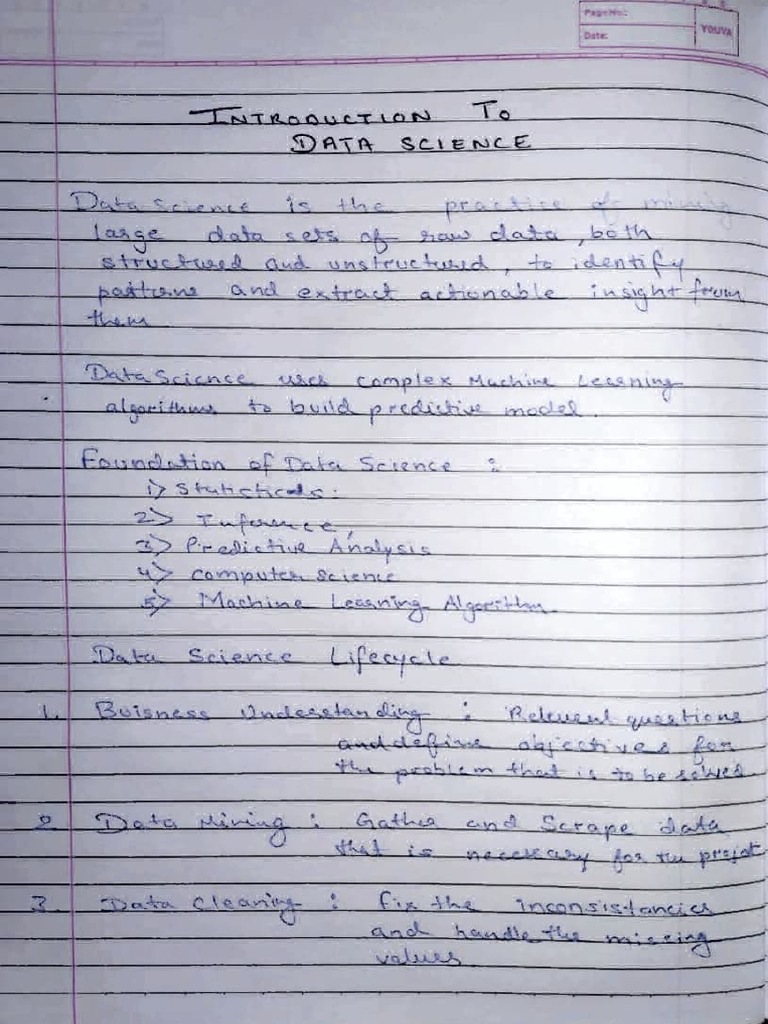 Page No.:
Date:
YOUVA
INTRODUCTION TO
DATA SCIENCE
Data science is the practice of mining
large data sets of raw data, both
structured and unstructured, to identify
patterns and extract actionable insight from
them
Data Science uses complex Machine Learning
algorithms to build predictive model.
Foundation of Data Science :
1> Statisticals.
2> Inference,
3> Predictive Analysis
4> computer science
5> Machine Learning Algorithm
Data Science Lifecycle
1. Buisness Understanding : Relevent questions
and define objectives for
the problem that is to be solved
2. Data Mining : Gather and Scrape data
that is necessary for the projct
3. Data Cleaning : fix the inconsistancies
and handle the missing
values